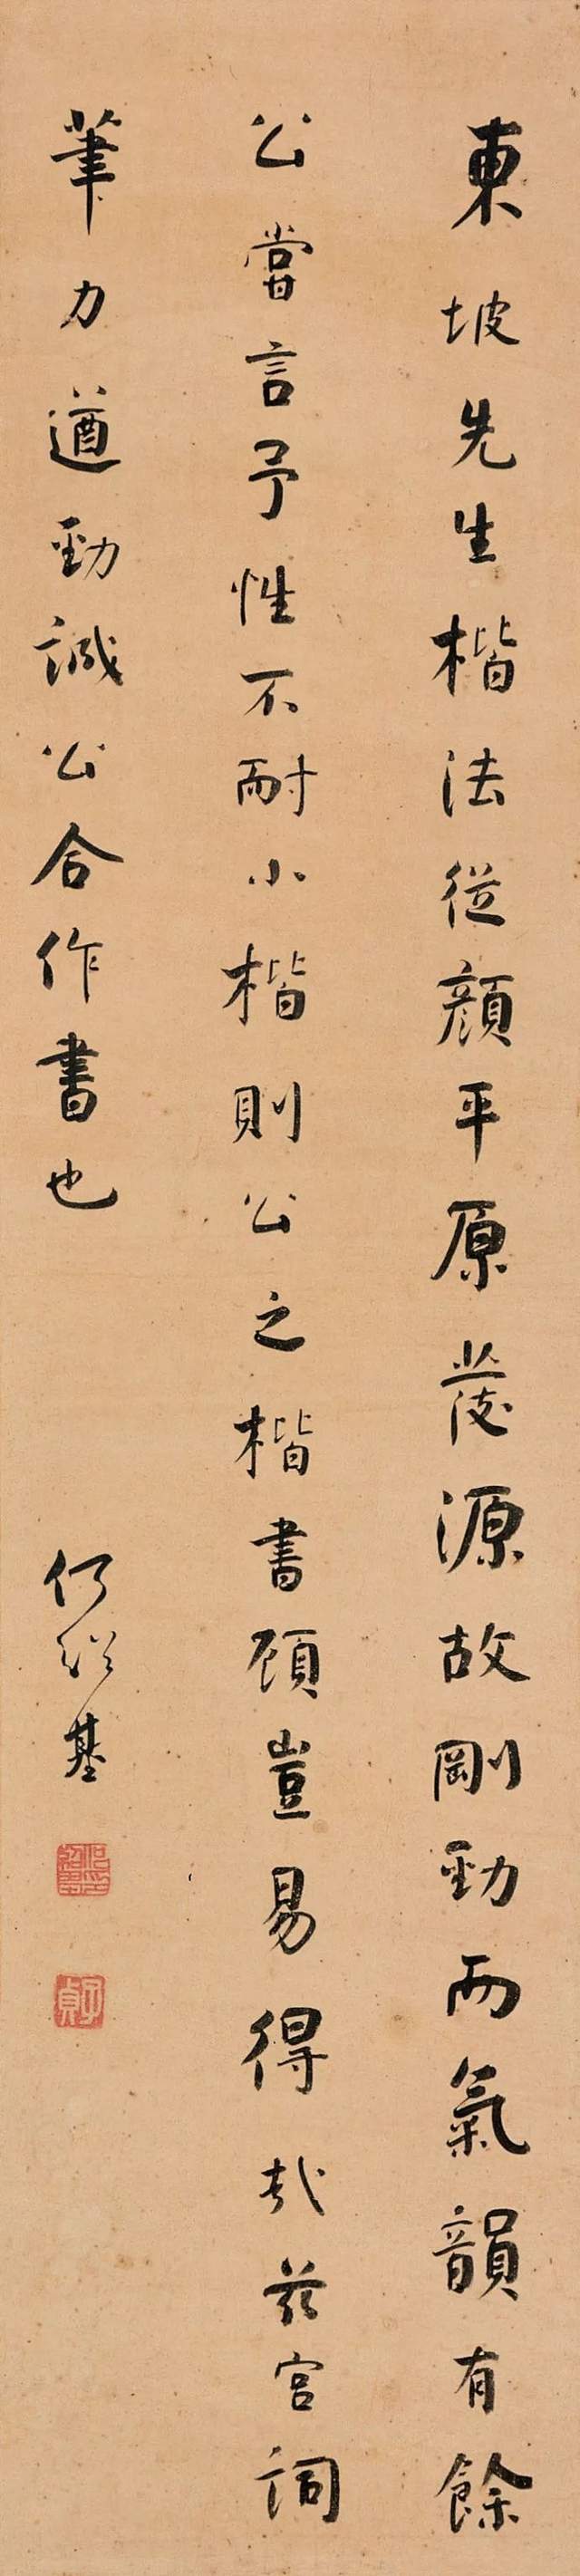 東坡先生楷法從顏平原發源故剛勁而氣韻有餘
公嘗言予性不耐小楷則公之楷書顧豈易得哉茲宮詞
筆力遒勁誠公合作書也
何紹基
子貞